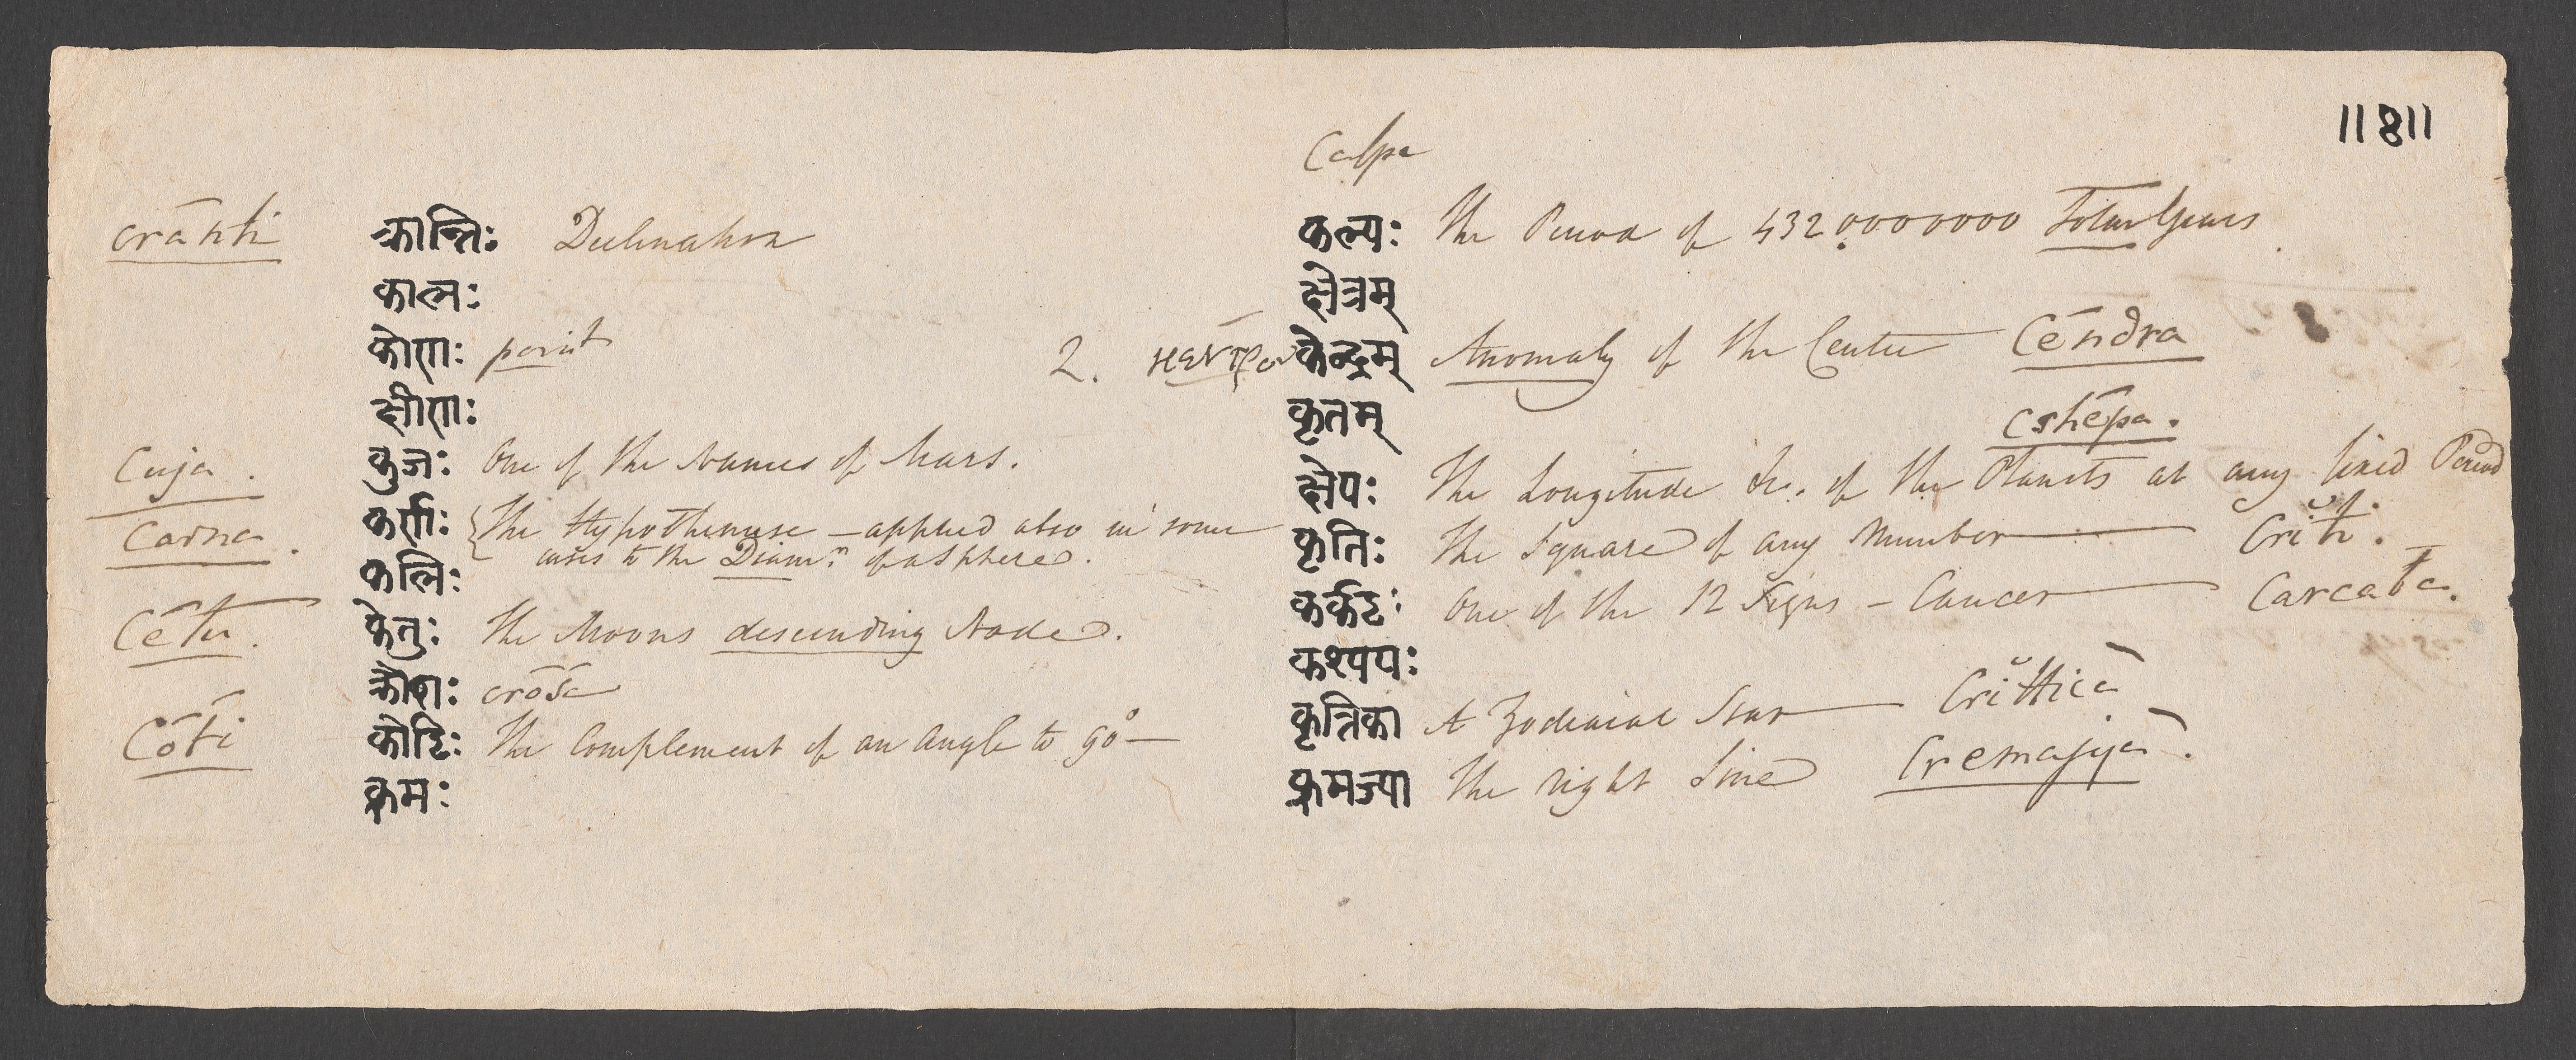 ॥ ४ ॥
crānti क्रान्तिः Declination
कालः
कोणः point
क्षीणः
Cuja. कुजः One of the Names of Mars.
Carna. कर्णः { The Hypothenuse — applied also in some
cases to the Diamr. of a Sphere.
कलिः
Cētu. केतुः The Moons descending Node.
क्रोशः crōsa
Cōti कोटिः The Complement of an Angle to 90° —
क्रमः
Calpa
कल्पः The Period of 4320000000 Solar Years
क्षेत्रम्
2. κεντρον केन्द्रम् Anomaly of the Center Cēndra
कृतम्
Cshēpa.
क्षेपः The Longitude &c. of the Planets at any fixed Period
कृतिः The Square of any Number — Criti.
कर्कटः One of the 12 Signs — Cancer — Carcata.
कश्यपः
कृत्तिका A Zodiacal Star — Crittica
क्रमज्या The right Sine Cremajya.